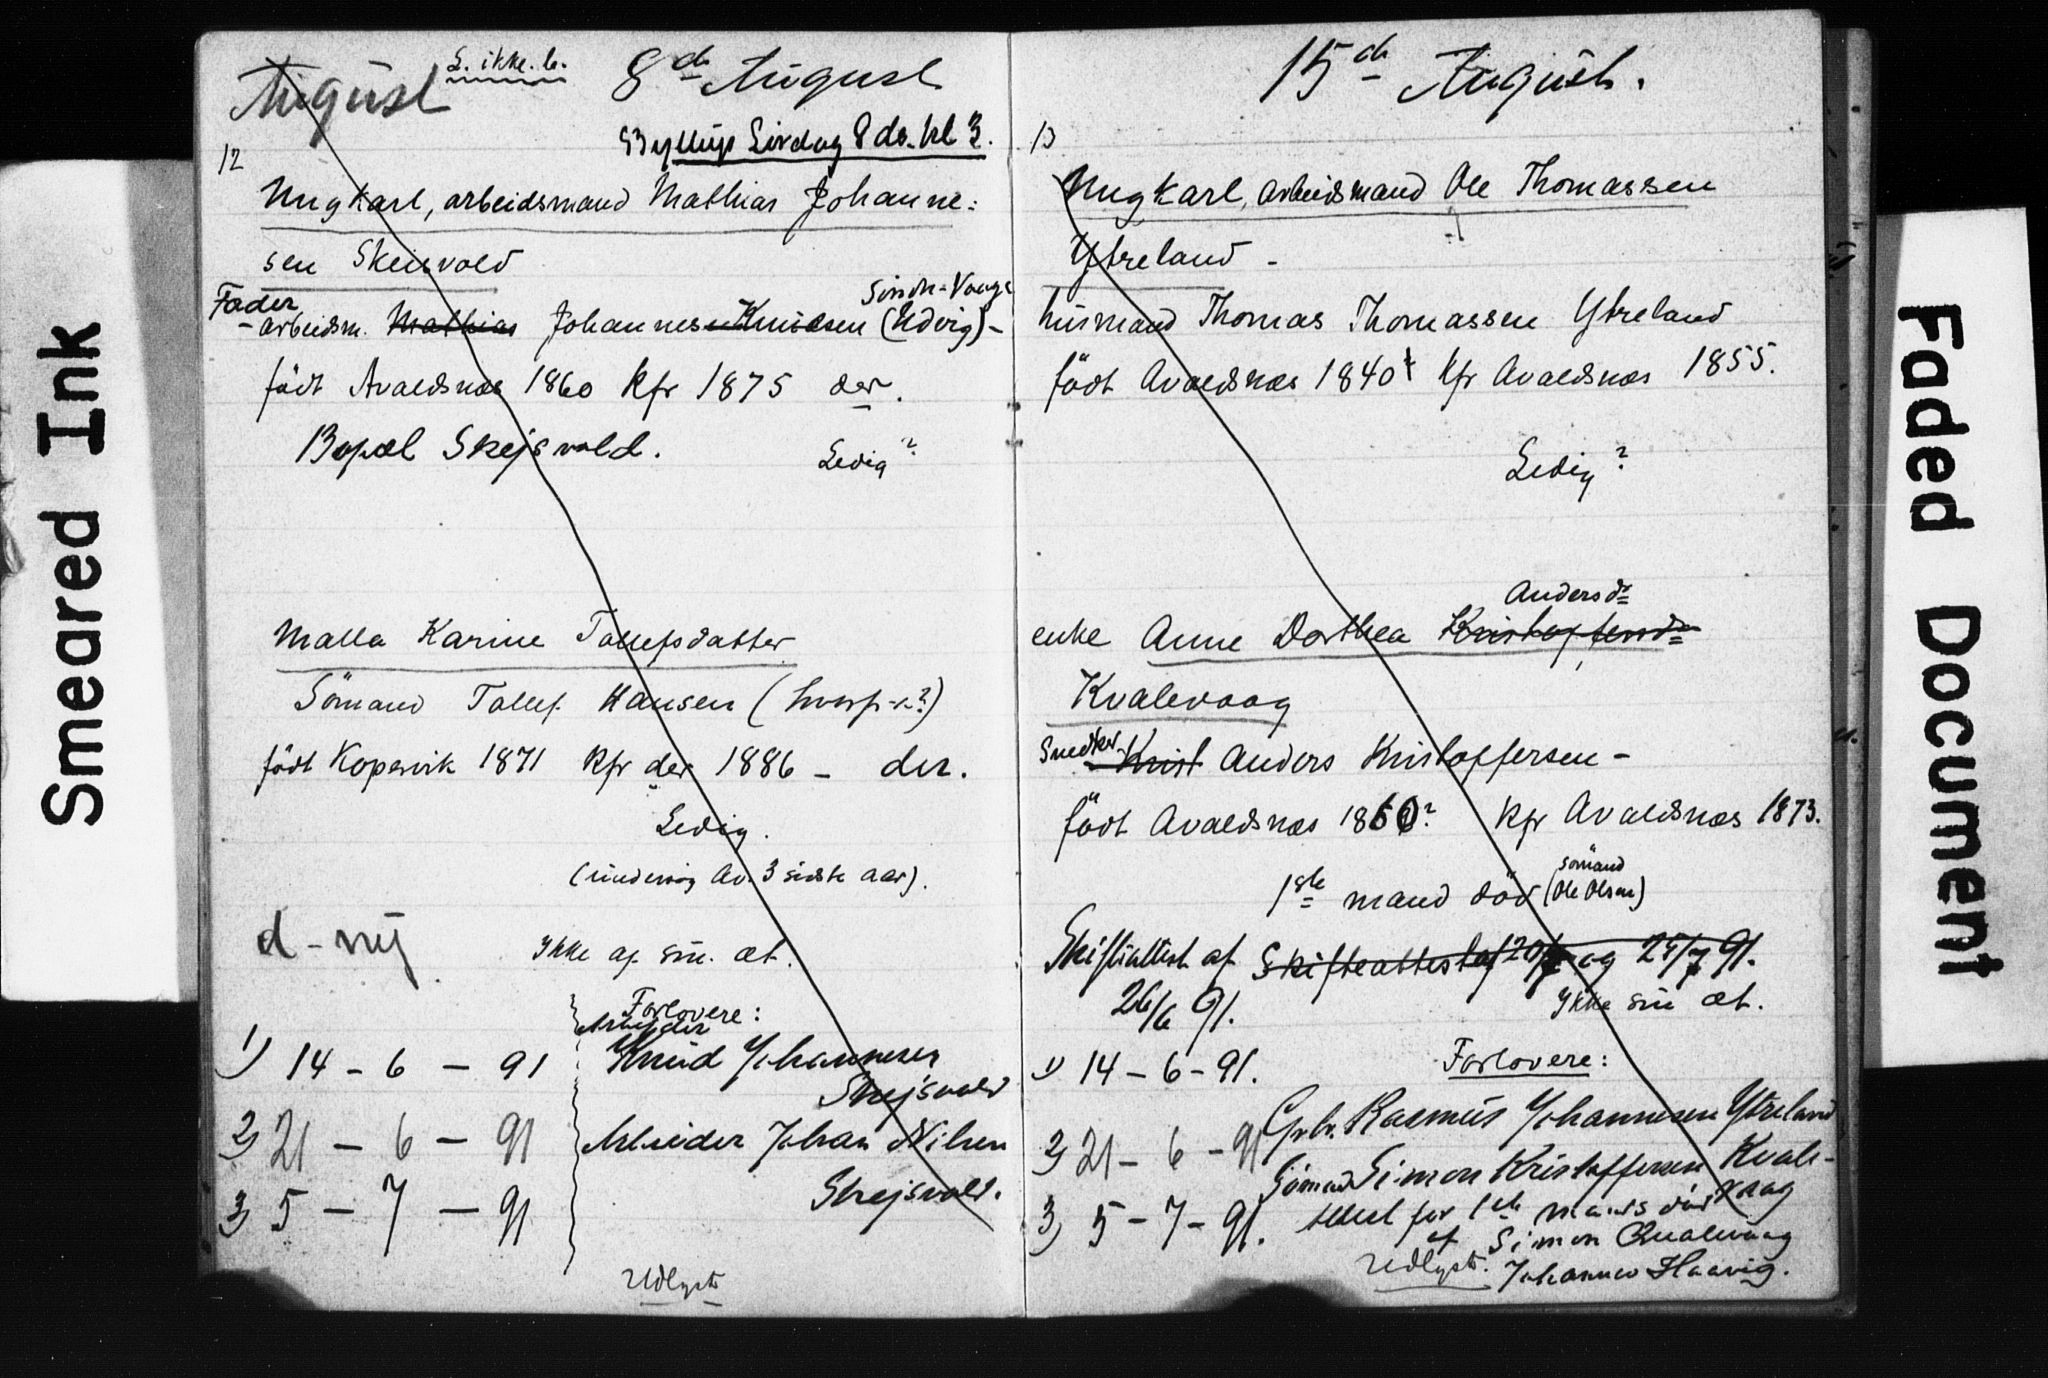 Smeared Ink
August
L. ikke. b.
8de August
Bryllup Lördag 8de. kl 3.
12
Ungkarl, arbeidsmand Mathias Johanne=
sen Skeisvold
Fader
- arbeidsm. Mathias Johannes Knudsen (Udvig) -
født Avaldsnæs 1860 kfr 1875 der.
Bopæl Skejsvold.
Ledig?
Malla Karine Tollefsdatter
Sömand Tollef Hansen
födt Kopervik 1871 kfr der 1886 - der.
Ledig.
3 sidste aar).
d - nÿ
Ikke af sm. æt.
Forlovere:
1) 14 - 6 - 91
Arbeider
Knud Johannesen
Skejsvold
2) 21 - 6 - 91
Arbeider Johan Nilsen
Skejsvold.
3) 5 - 7 - 91
Udlyst
15de August.
13
Ungkarl, arbeidsmand Ole Thomassen
Ytreland -
husmand Thomas Thomassen Ytreland
födt Avaldsnæs 1840 kfr Avaldsnæs 1855.
Ledig?
Andersdr
enke Anne Dorthea Kristoffersdr
Kvalevaag
Snedker Krist Anders Kristoffersen -
födt Avaldsnæs 1860? kfr Avaldsnæs 1873.
1ste mand död (sömand Ole Olsen)
Skifteattest af Skifteattest af 20/7 og 25/7 91.
26/6 91.
Ikke sm æt.
1) 14 - 6 - 91.
Forlovere:
Gbr. Rasmus Johannesen Ytreland
2) 21 - 6 - 91
Sömand Simon Kristoffersen Kvale-
vaag
3) 5 - 7 - 91.
attest for 1ste mands död
af Simon Qualevaag
Udlyst. Johannes Haavig.
Faded Document